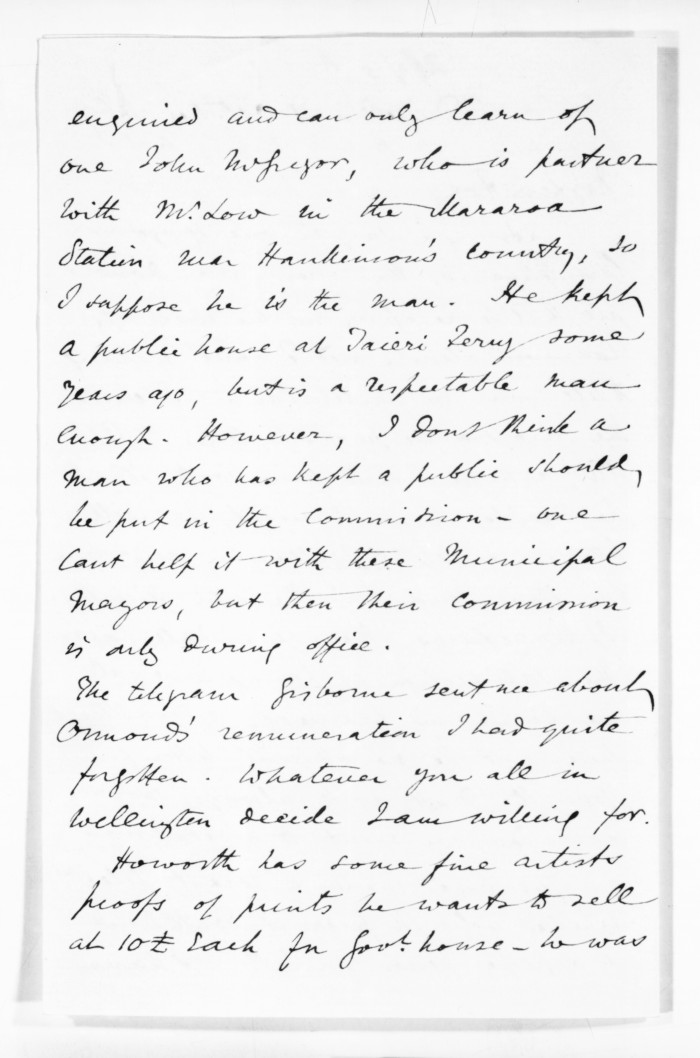 enquired and can only learn of
one John McGregor, who is partner
with Mr. Low in the Mararoa
Station near Hankinson's country, so
I suppose he is the man. He kept
a public house at Taieri Ferry some
years ago, but is a respectable man
enough. However, I dont think a
man who has kept a public should
be put in the Commission - one
cant help it with these Municipal
Mayors, but then their Commission
is only during office.
The telegram Gisborne sent me about
Ormond's remuneration I had quite
forgotten. Whatever you all in
Wellington decide I am willing for.
Howorth has some fine artists
proofs of prints he wants to sell
at 10£ each for Govt. house - he was